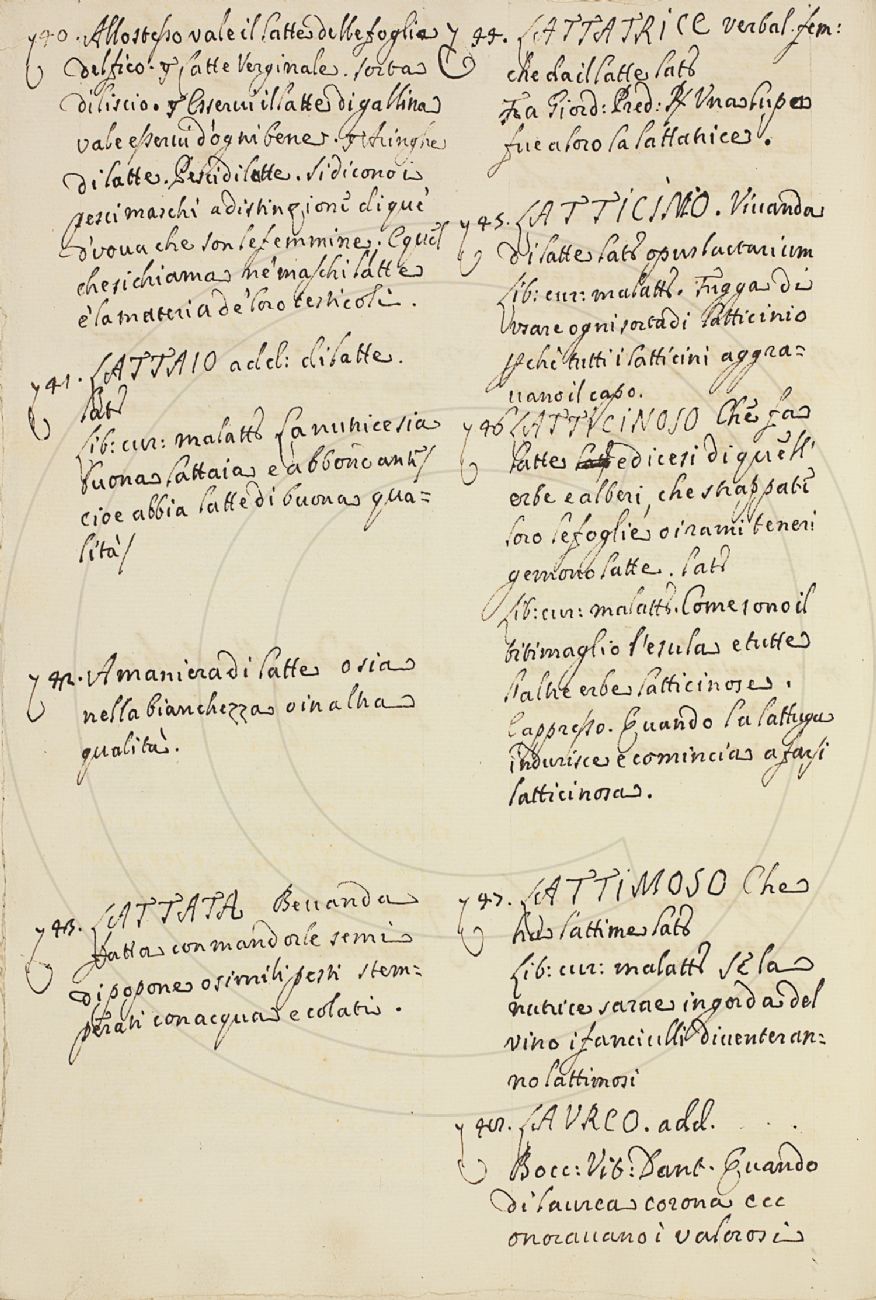 740. Allo stesso vale il latte delle foglie
del fico. § Latte Verginale. sorta
di liscio. § Esserui il latte di gallina
vale esserui d'ogni bene. § Aringhe
di latte. Pesci di latte. si dicono i
pesci maschi a distinzione di que'
d'voua che son le femmine. E quel
che si chiama ne' maschi latte
è la materia de' loro testicoli.
741. LATTAIO add: di latte.
Lat
Lib: cur: malatt La nutrice sia
buona lattaia e abbonc anti/
cioe abbia latte di buona qua=
lità/
742. A maniera di latte o sia
nella bianchezza o in altra
qualità.
743. LATTATA Beuanda
fatta con mandorle semi
di popone o simili pesti stem=
perati con acqua e colati.
744. LATTATRICE verbal. fem:
che da il latte lat
Fra Giord: Pred: R Vna lupa
fue a loro la lattatrice.
745. LATTICINIO. Viuanda
di latte lat opus lactarium
Lib: cur: malatt. Fugga di
vsare ogni sorta di latticinio
pche tutti i latticini aggra=
uano il capo.
746 LATTICINOSO Che fa
latte e dicesi di quell'
erbe e alberi, che strappati
loro le foglie o i rami teneri
gemono latte. lat
Lib: cur: malatt. Come sono il
titimaglio l'esula e tutte
l'altre erbe latticinose.
E appresso. Quando la lattuga
indurisce e comincia a farsi
latticinosa.
747. LATTIMOSO Che
ha lattime lat
Lib: cur: malatt Se la
nutrice sarae ingorda del
vino i fanciulli diuenteran=
no lattimosi
748. LAUREO. add.
Bocc: Vit: Dant. Quando
di laurea corona ecc
onorauano i valorosi